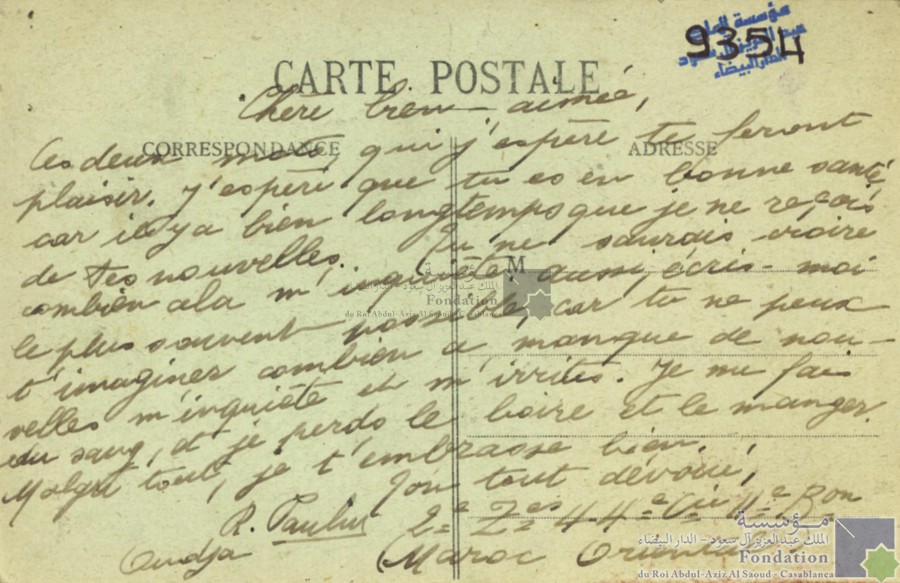 مؤسسة الملك
عبد العزيز آل سعود
الدار البيضاء
9354
CARTE POSTALE
Chère bien-aimée,
CORRESPONDANCE
ADRESSE
Ces deux mots, qui j'espère te feront
plaisir. J'espère que tu es en bonne santé,
car il y a bien longtemps que je ne reçois
de tes nouvelles. Tu ne saurais croire
M
combien cela m'inquiète, aussi, écris-moi
مؤسسة
الملك عبد العزيز آل سعود - الدار البيضاء
Fondation
du Roi Abdul-Aziz Al Saoud - Casablanca
le plus souvent possible, car tu ne peux
t'imaginer combien ce manque de nou-
velles m'inquiète et m'irrite. Je me fais
du sang, et je perds le boire et le manger.
Malgré tout, je t'embrasse bien.
Ton tout dévoué,
R. Paulus
2e Zes 44e Cie 11e Bon
Oudja
Maroc Oriental
مؤسسة
الملك عبد العزيز آل سعود - الدار البيضاء
Fondation
du Roi Abdul-Aziz Al Saoud - Casablanca